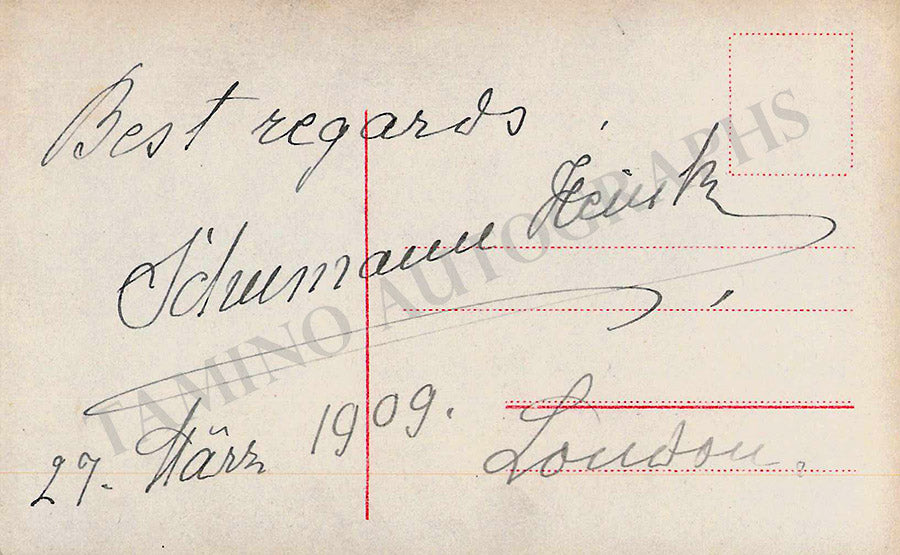 Best regards
Schumann Heink
27. März 1909.
London.
TAMINO AUTOGRAPHS